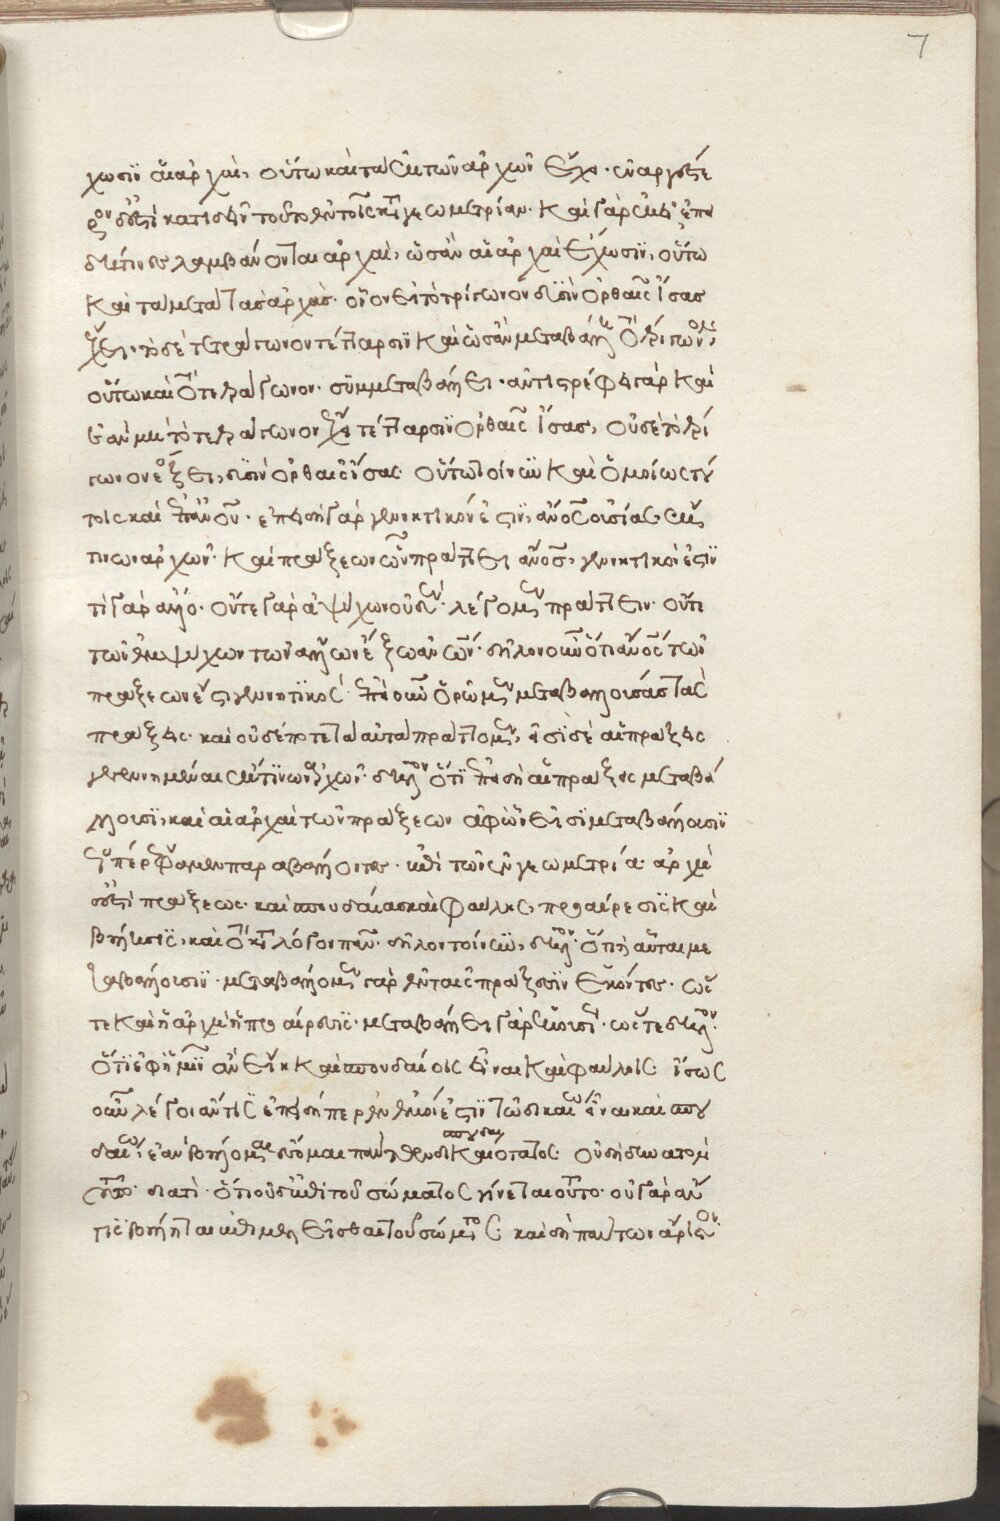 7
χωσιν αἱ ἀρχαὶ, οὕτω καὶ τὰ ἐκ τῶν ἀρχῶν ἔχει. ἐναργέστε
ρον δ' ἐστὶ κατιδεῖν τοῦτο ἐν τοῖς κατὰ γεωμετρίαν. καὶ γὰρ ἐκεῖ ἐπει
δή τινες λαμβάνονται ἀρχαὶ, ὡς ἂν αἱ ἀρχαὶ ἔχωσιν, οὕτω
καὶ τὰ μετὰ τὰς ἀρχάς. οἷον εἰ τὸ τρίγωνον δυσὶν ὀρθαῖς ἴσας
ἔχει, τὸ δὲ τετράγωνον τέτταρσιν καὶ ὡς ἂν μεταβάλλῃ τὸ τρίγωνον,
οὕτω καὶ τὸ τετράγωνον. συμμεταβάλλει. ἀντιστρέφει γὰρ καὶ
ἐὰν μὴ τὸ τετράγωνον ἔχῃ τέτταρσιν ὀρθαῖς ἴσας, οὐδὲ τὸ τρί
γωνον ἕξει, δυσὶν ὀρθαῖς ἴσας. οὕτω τοίνυν καὶ ὁμοίως τού
τοις καὶ ἐπὶ ἀνθρώπου. ἐπειδὴ γὰρ γεννητικόν ἐστιν, ἄνθρωπος οὐσίας, ἐκ
τινων ἀρχῶν. καὶ πράξεων ὧν πράττει ἄνθρωπος, γεννητικοί ἐστιν
τί γὰρ ἄλλο. οὔτε γὰρ ἀψύχων οὐδὲν λέγομεν πράττειν. οὔτε
τῶν ἐμψύχων τῶν ἄλλων ἔξω ἀνθρώπων. δῆλον οὖν ὅτι ἄνθρωπος τῶν
πράξεών ἐστι γεννητικός. ἐπεὶ οὖν ὁρῶμεν μεταβαλλούσας τὰς
πράξεις. καὶ οὐδέποτε ταὐτὰ πράττομεν, εἰσὶ δὲ αἱ πράξεις
γεγενημέναι ἔκ τινων ἀρχῶν. δῆλον ὅτι ἐπειδὴ αἱ πράξεις μεταβάλ
λουσιν, καὶ αἱ ἀρχαὶ τῶν πράξεων ἀφ' ὧν εἰσὶ μεταβάλλουσιν
ὥσπερ ἔφαμεν παραβάλλοντες. ἐπὶ τῶν ἐν γεωμετρίᾳ. ἀρχὴ
δ' ἐστὶ πράξεως. καὶ σπουδαίας καὶ φαύλης, προαίρεσις καὶ
βούλησις, καὶ τὸ κατὰ λόγον πᾶν. δῆλον τοίνυν, ὅτι καὶ αὗται με
ταβάλλουσιν. μεταβάλλομεν γὰρ ἐν ταῖς πράξεσιν ἑκόντες. ὥς
τε καὶ ἡ ἀρχὴ ἡ προαίρεσις. μεταβάλλει γὰρ ἑκουσίως. ὥστε δῆλον.
ὅτι ἐφ' ἡμῖν ἂν εἴη καὶ σπουδαίοις εἶναι καὶ φαύλοις. ἴσως
οὖν λέγοι ἄν τις ἐπειδήπερ ἐν ἐμοί ἐστιν τὸ δικαίῳ εἶναι καὶ σπου
δαίῳ, ἐὰν βούλωμαι ἔσομαι πάντων σπουδαιότατος. οὐ δὴ δυνατὸν
τοῦτο. διατί. ὅτι οὐδ' ἐπὶ τοῦ σώματος γίνεται τοῦτο. οὐ γὰρ ἄν
τις βούληται ἐπιμελεῖσθαι τοῦ σώματος. καὶ δὴ πάντων ἄριστον